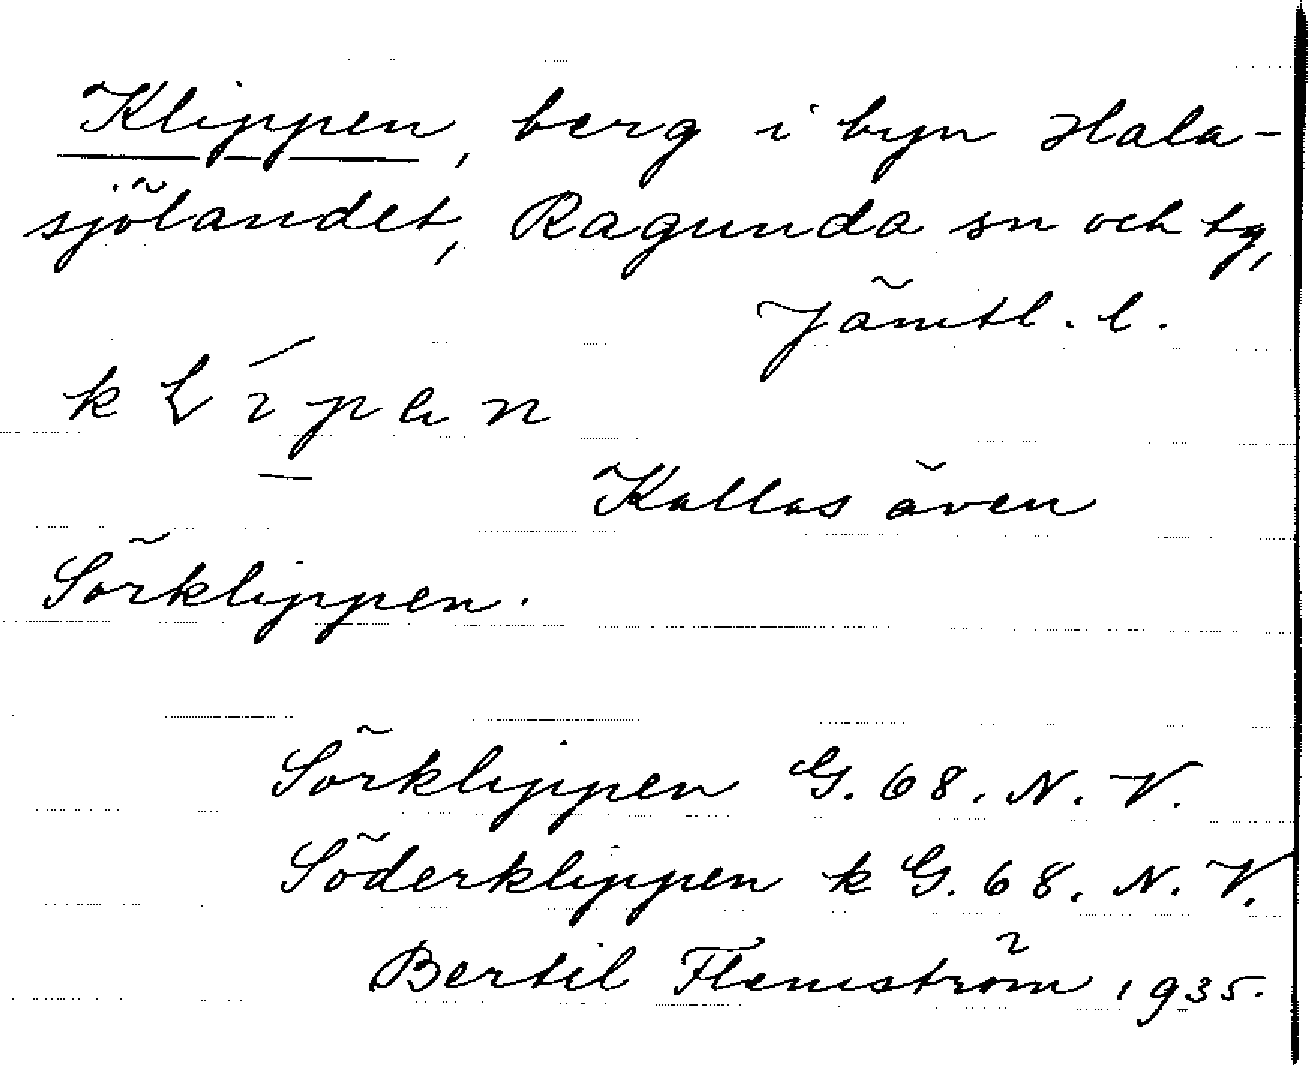 Klippen, berg i byn Hala-
sjölandet, Ragunda sn och tg,
Jämtl. l.
Kallas även
Sörklippen.
Sörklippen G. 68. N. V.
Söderklippen k G. 68. N. V.
Bertil Flemström 1935.